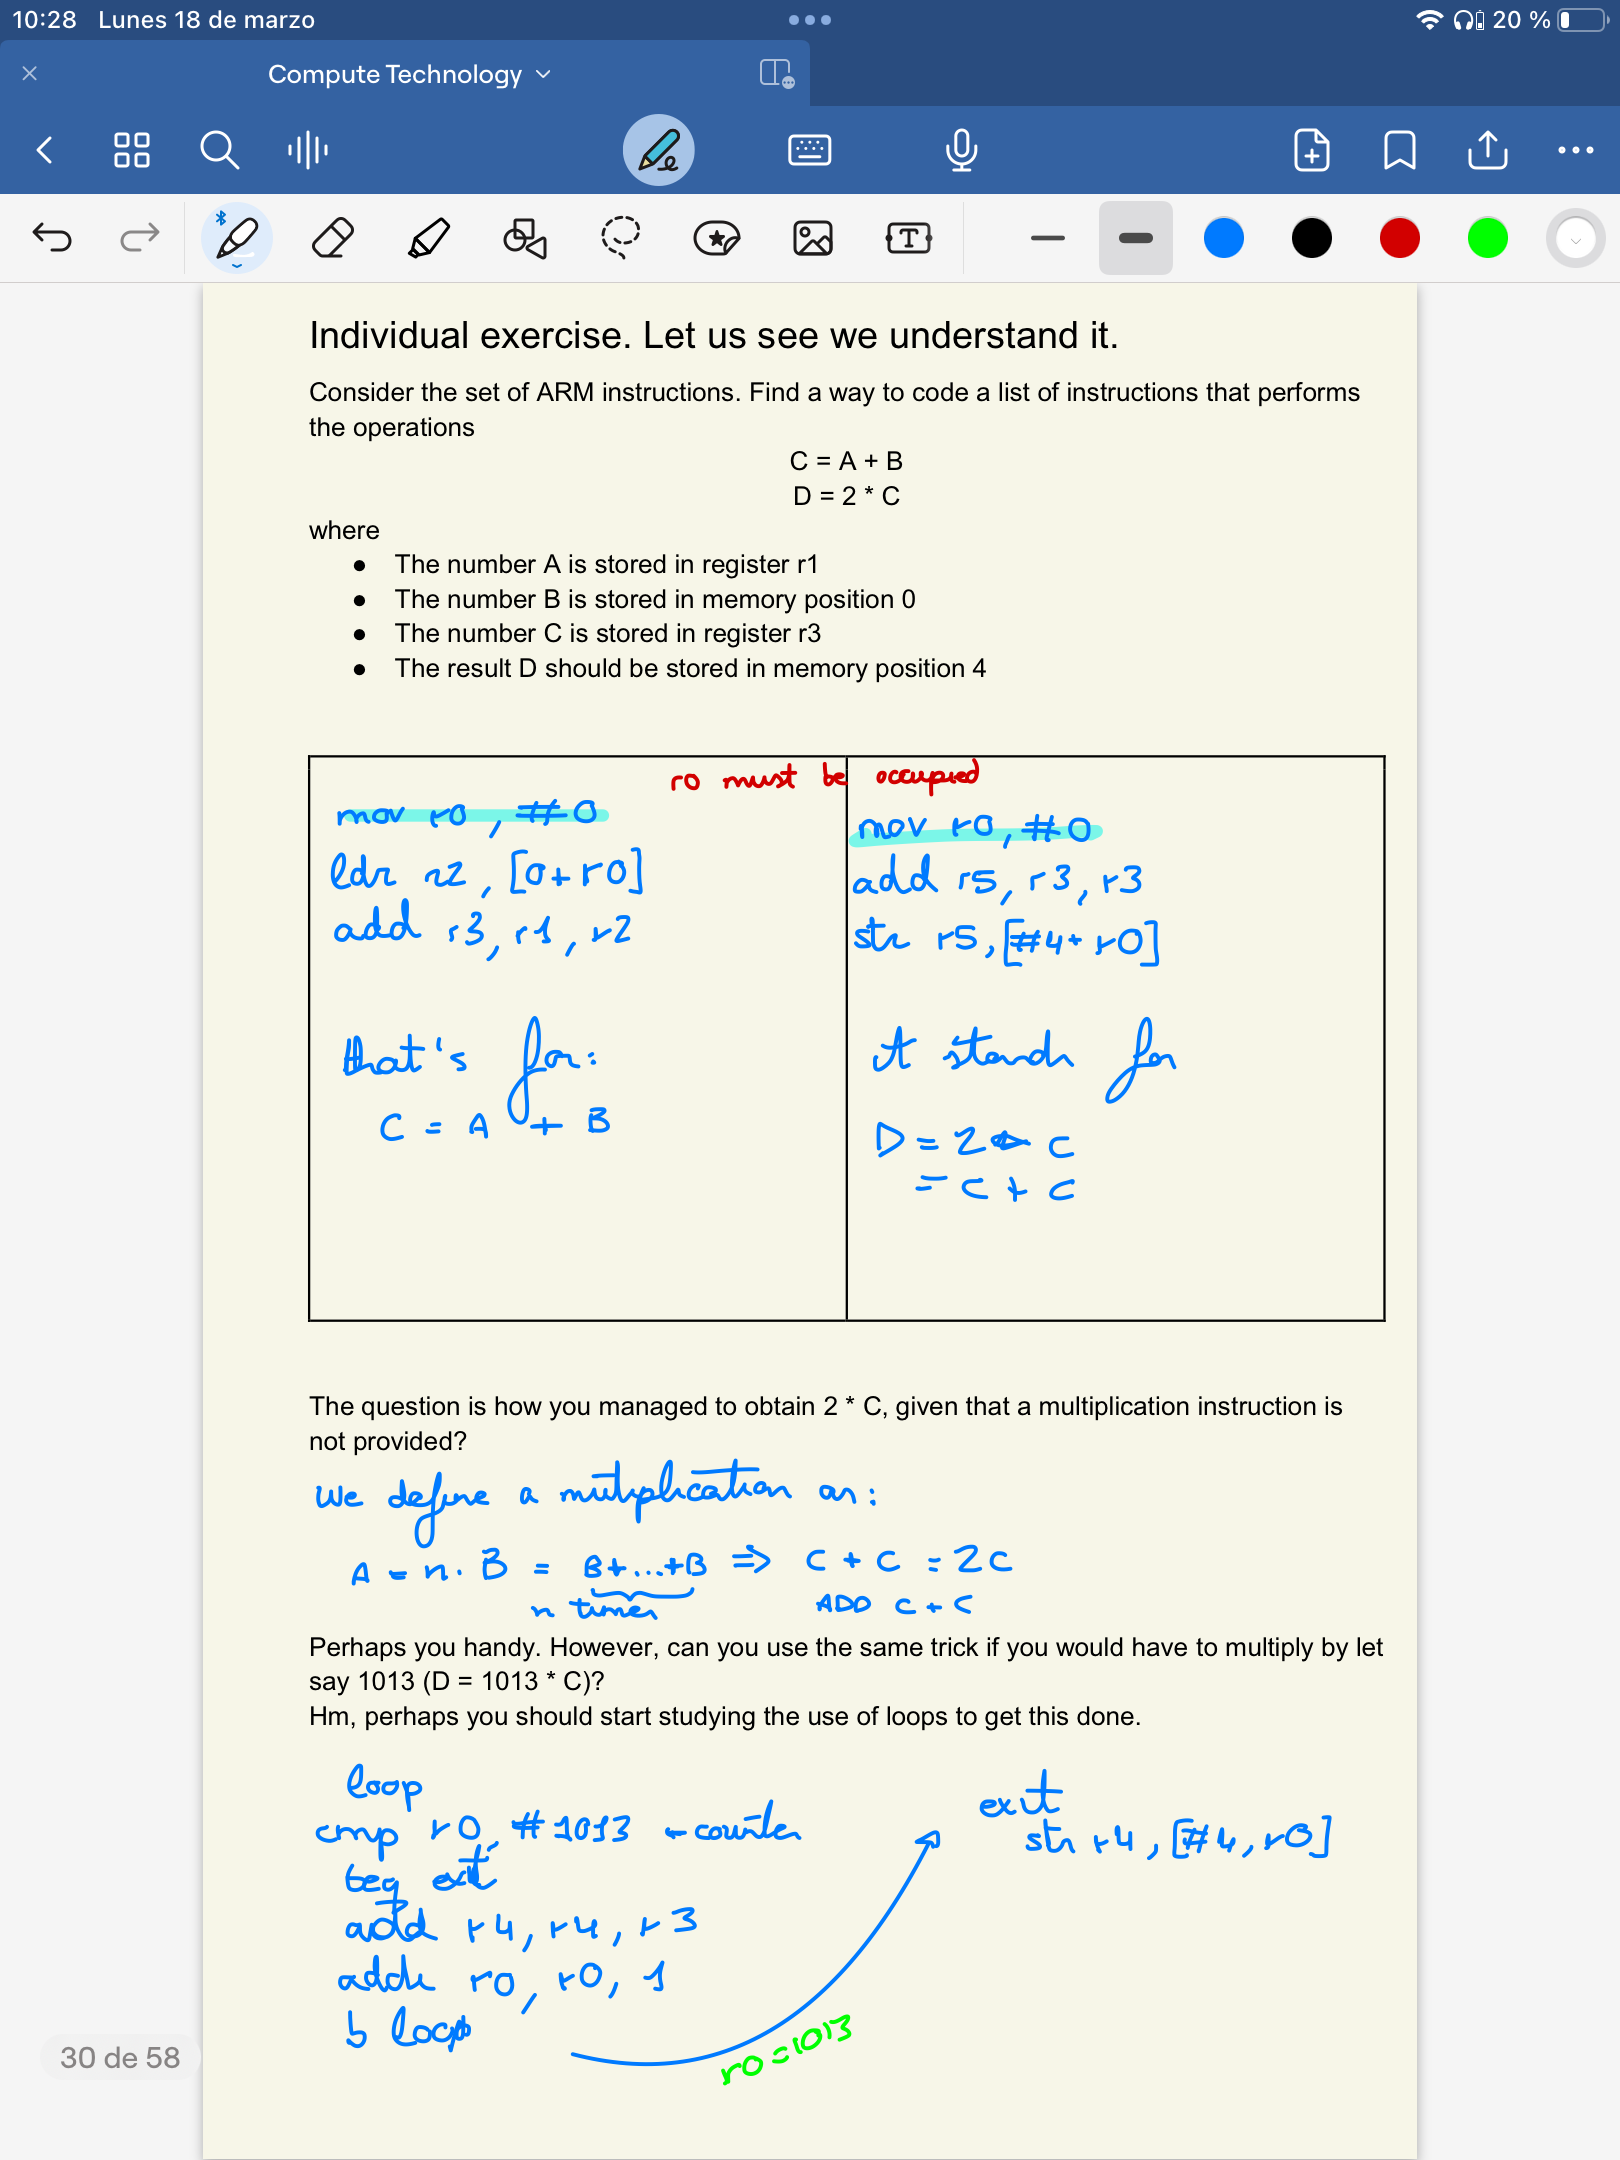 10:28 Lunes 18 de marzo
20 %
Compute Technology
Individual exercise. Let us see we understand it.
Consider the set of ARM instructions. Find a way to code a list of instructions that performs
the operations
C = A + B
D = 2 * C
where
● The number A is stored in register r1
● The number B is stored in memory position 0
● The number C is stored in register r3
● The result D should be stored in memory position 4
r0 must be occupied
mov r0, #0
ldr r2, [0+r0]
add r3, r1, r2
that's for:
C = A + B
mov r0, #0
add r5, r3, r3
str r5, [#4+ r0]
it stands for
D = 2 * C
= C + C
The question is how you managed to obtain 2 * C, given that a multiplication instruction is
not provided?
We define a multiplication as:
A = n · B = B+...+B ⇒ C + C = 2C
n times ADD C + C
Perhaps you handy. However, can you use the same trick if you would have to multiply by let
say 1013 (D = 1013 * C)?
Hm, perhaps you should start studying the use of loops to get this done.
loop
cmp r0, #1013 ← counter
beq exit
add r4, r4, r3
add r0, r0, 1
b loop
r0 = 1013
exit
str r4, [#4, r0]
30 de 58